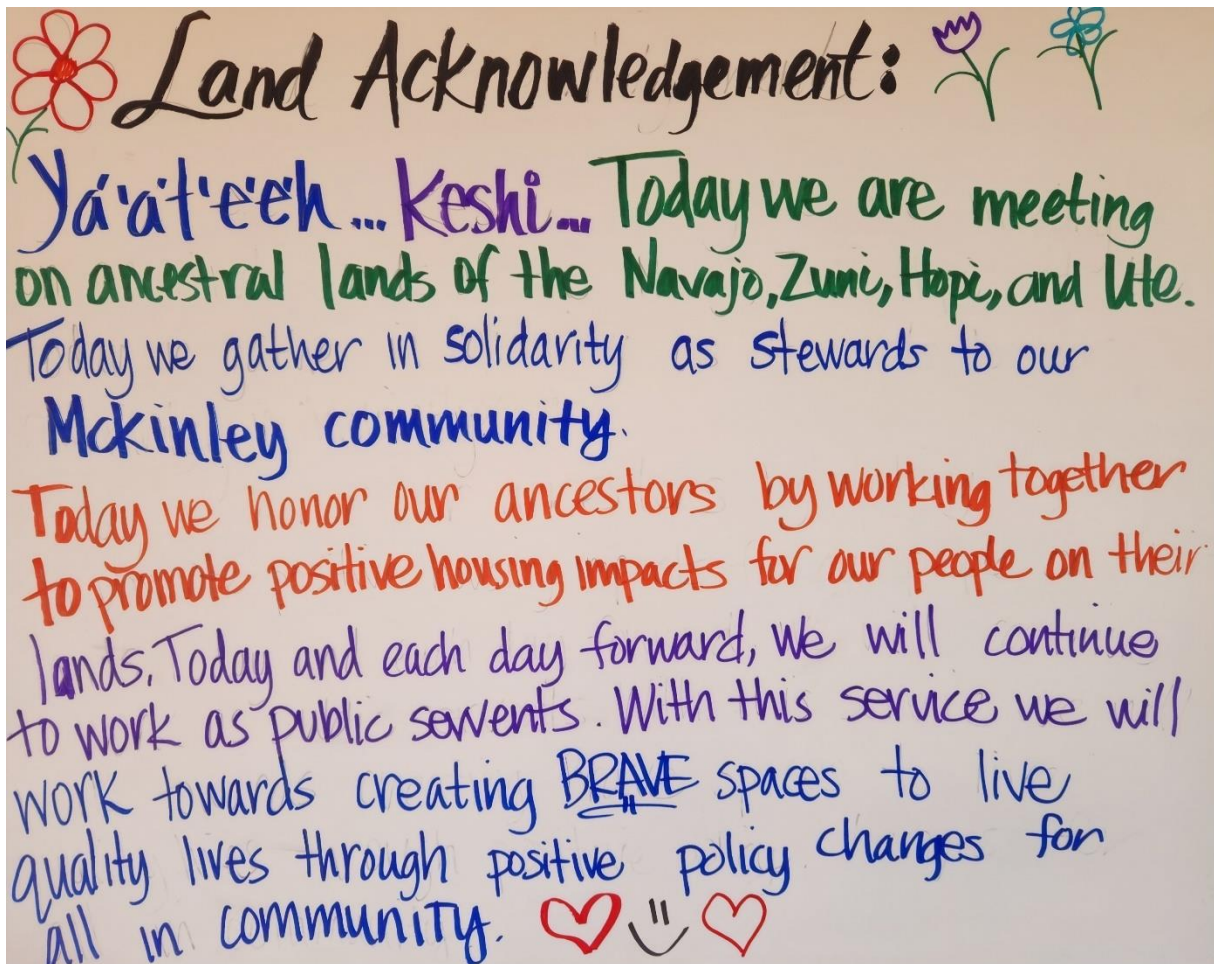 Land Acknowledgement:
Yá'át'ééh... Keshi... Today we are meeting
on ancestral lands of the Navajo, Zuni, Hopi, and Ute.
Today we gather in solidarity as stewards to our
Mckinley community.
Today we honor our ancestors by working together
to promote positive housing impacts for our people on their
lands. Today and each day forward, we will continue
to work as public servents. With this service we will
work towards creating BRAVE spaces to live
quality lives through positive policy changes for
all in community.